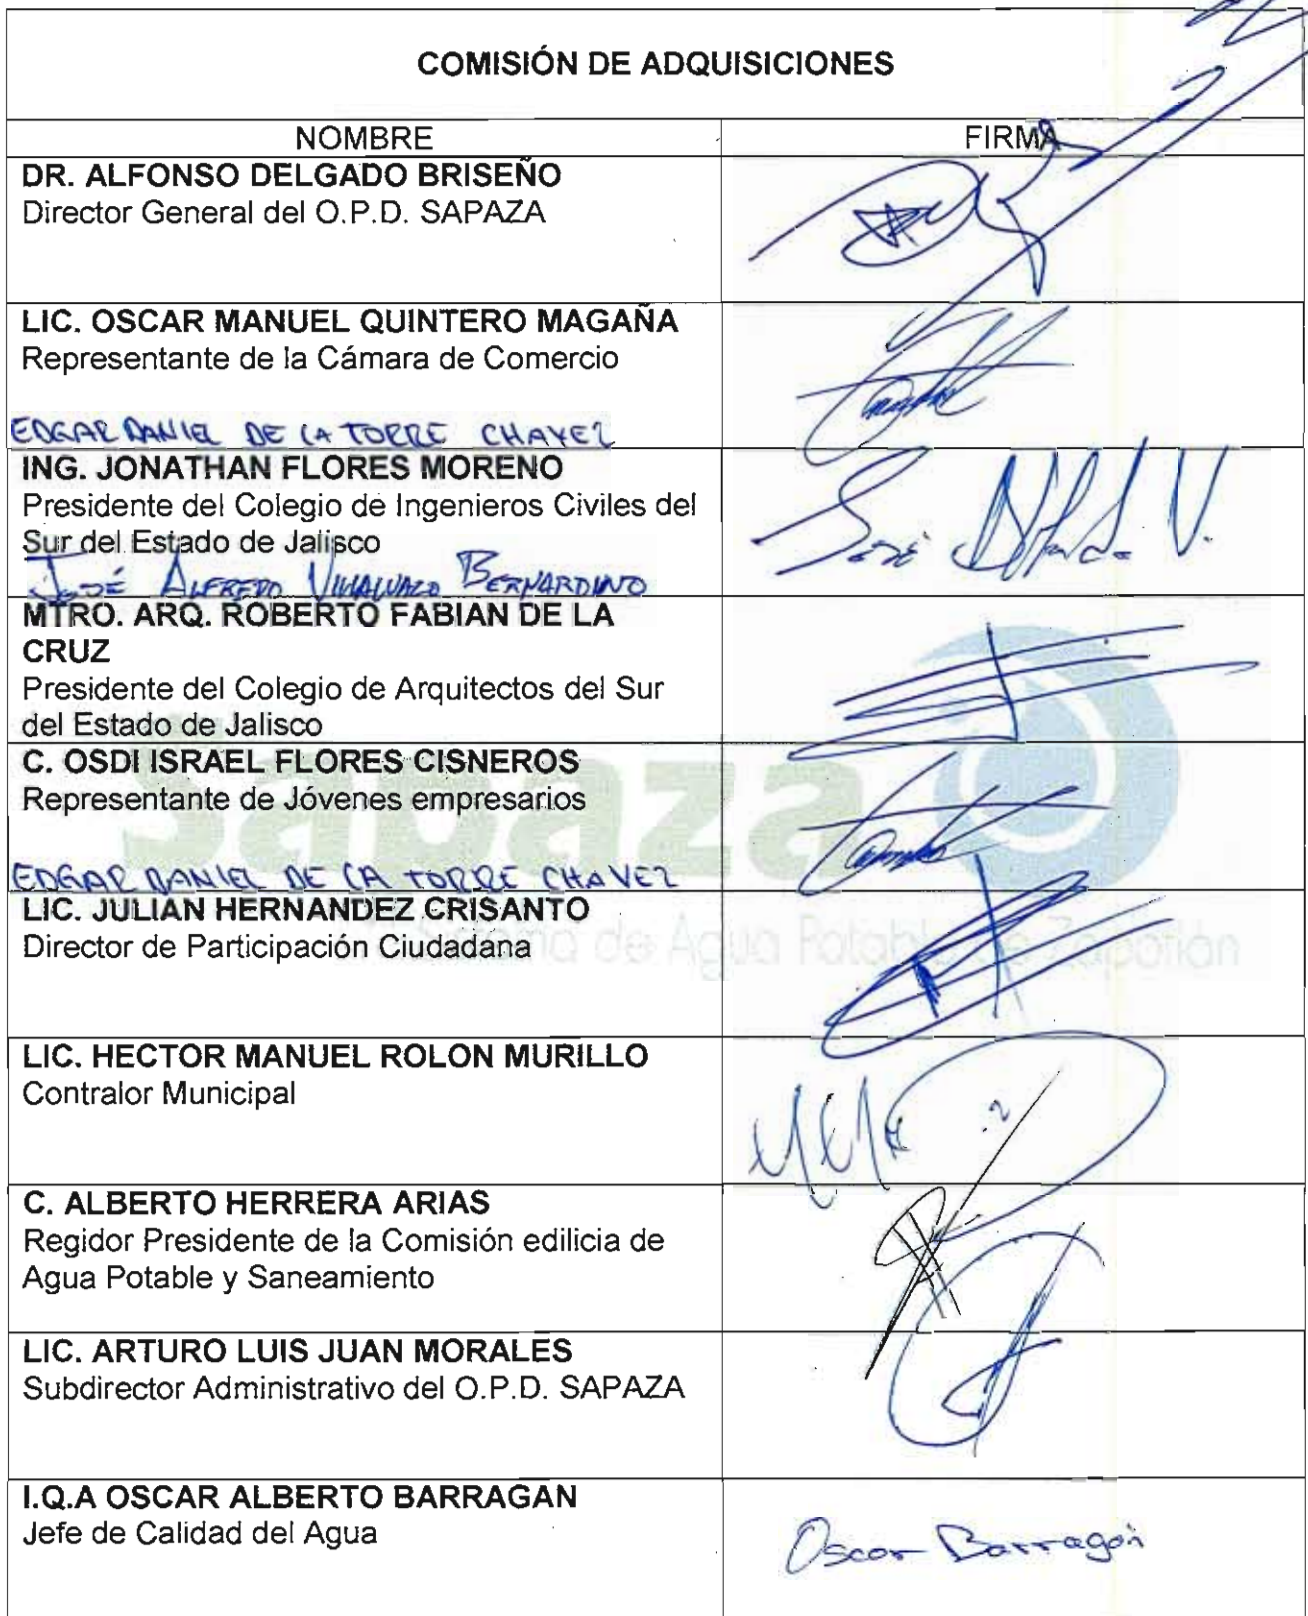 COMISIÓN DE ADQUISICIONES
NOMBRE
FIRMA
DR. ALFONSO DELGADO BRISEÑO
Director General del O.P.D. SAPAZA
LIC. OSCAR MANUEL QUINTERO MAGAÑA
Representante de la Cámara de Comercio
EDGAR DANIEL DE LA TORRE CHAVEZ
ING. JONATHAN FLORES MORENO
Presidente del Colegio de Ingenieros Civiles del
Sur del Estado de Jalisco
JOSÉ ALFREDO VILLALVAZO BERNARDINO
José Alfredo V.
MTRO. ARQ. ROBERTO FABIAN DE LA
CRUZ
Presidente del Colegio de Arquitectos del Sur
del Estado de Jalisco
Sapaza
C. OSDI ISRAEL FLORES CISNEROS
Representante de Jóvenes empresarios
EDGAR DANIEL DE LA TORRE CHAVEZ
LIC. JULIAN HERNANDEZ CRISANTO
Director de Participación Ciudadana
Sistema de Agua Potable de Zapotlán
LIC. HECTOR MANUEL ROLON MURILLO
Contralor Municipal
C. ALBERTO HERRERA ARIAS
Regidor Presidente de la Comisión edilicia de
Agua Potable y Saneamiento
LIC. ARTURO LUIS JUAN MORALES
Subdirector Administrativo del O.P.D. SAPAZA
I.Q.A OSCAR ALBERTO BARRAGAN
Jefe de Calidad del Agua
Oscar Barragán